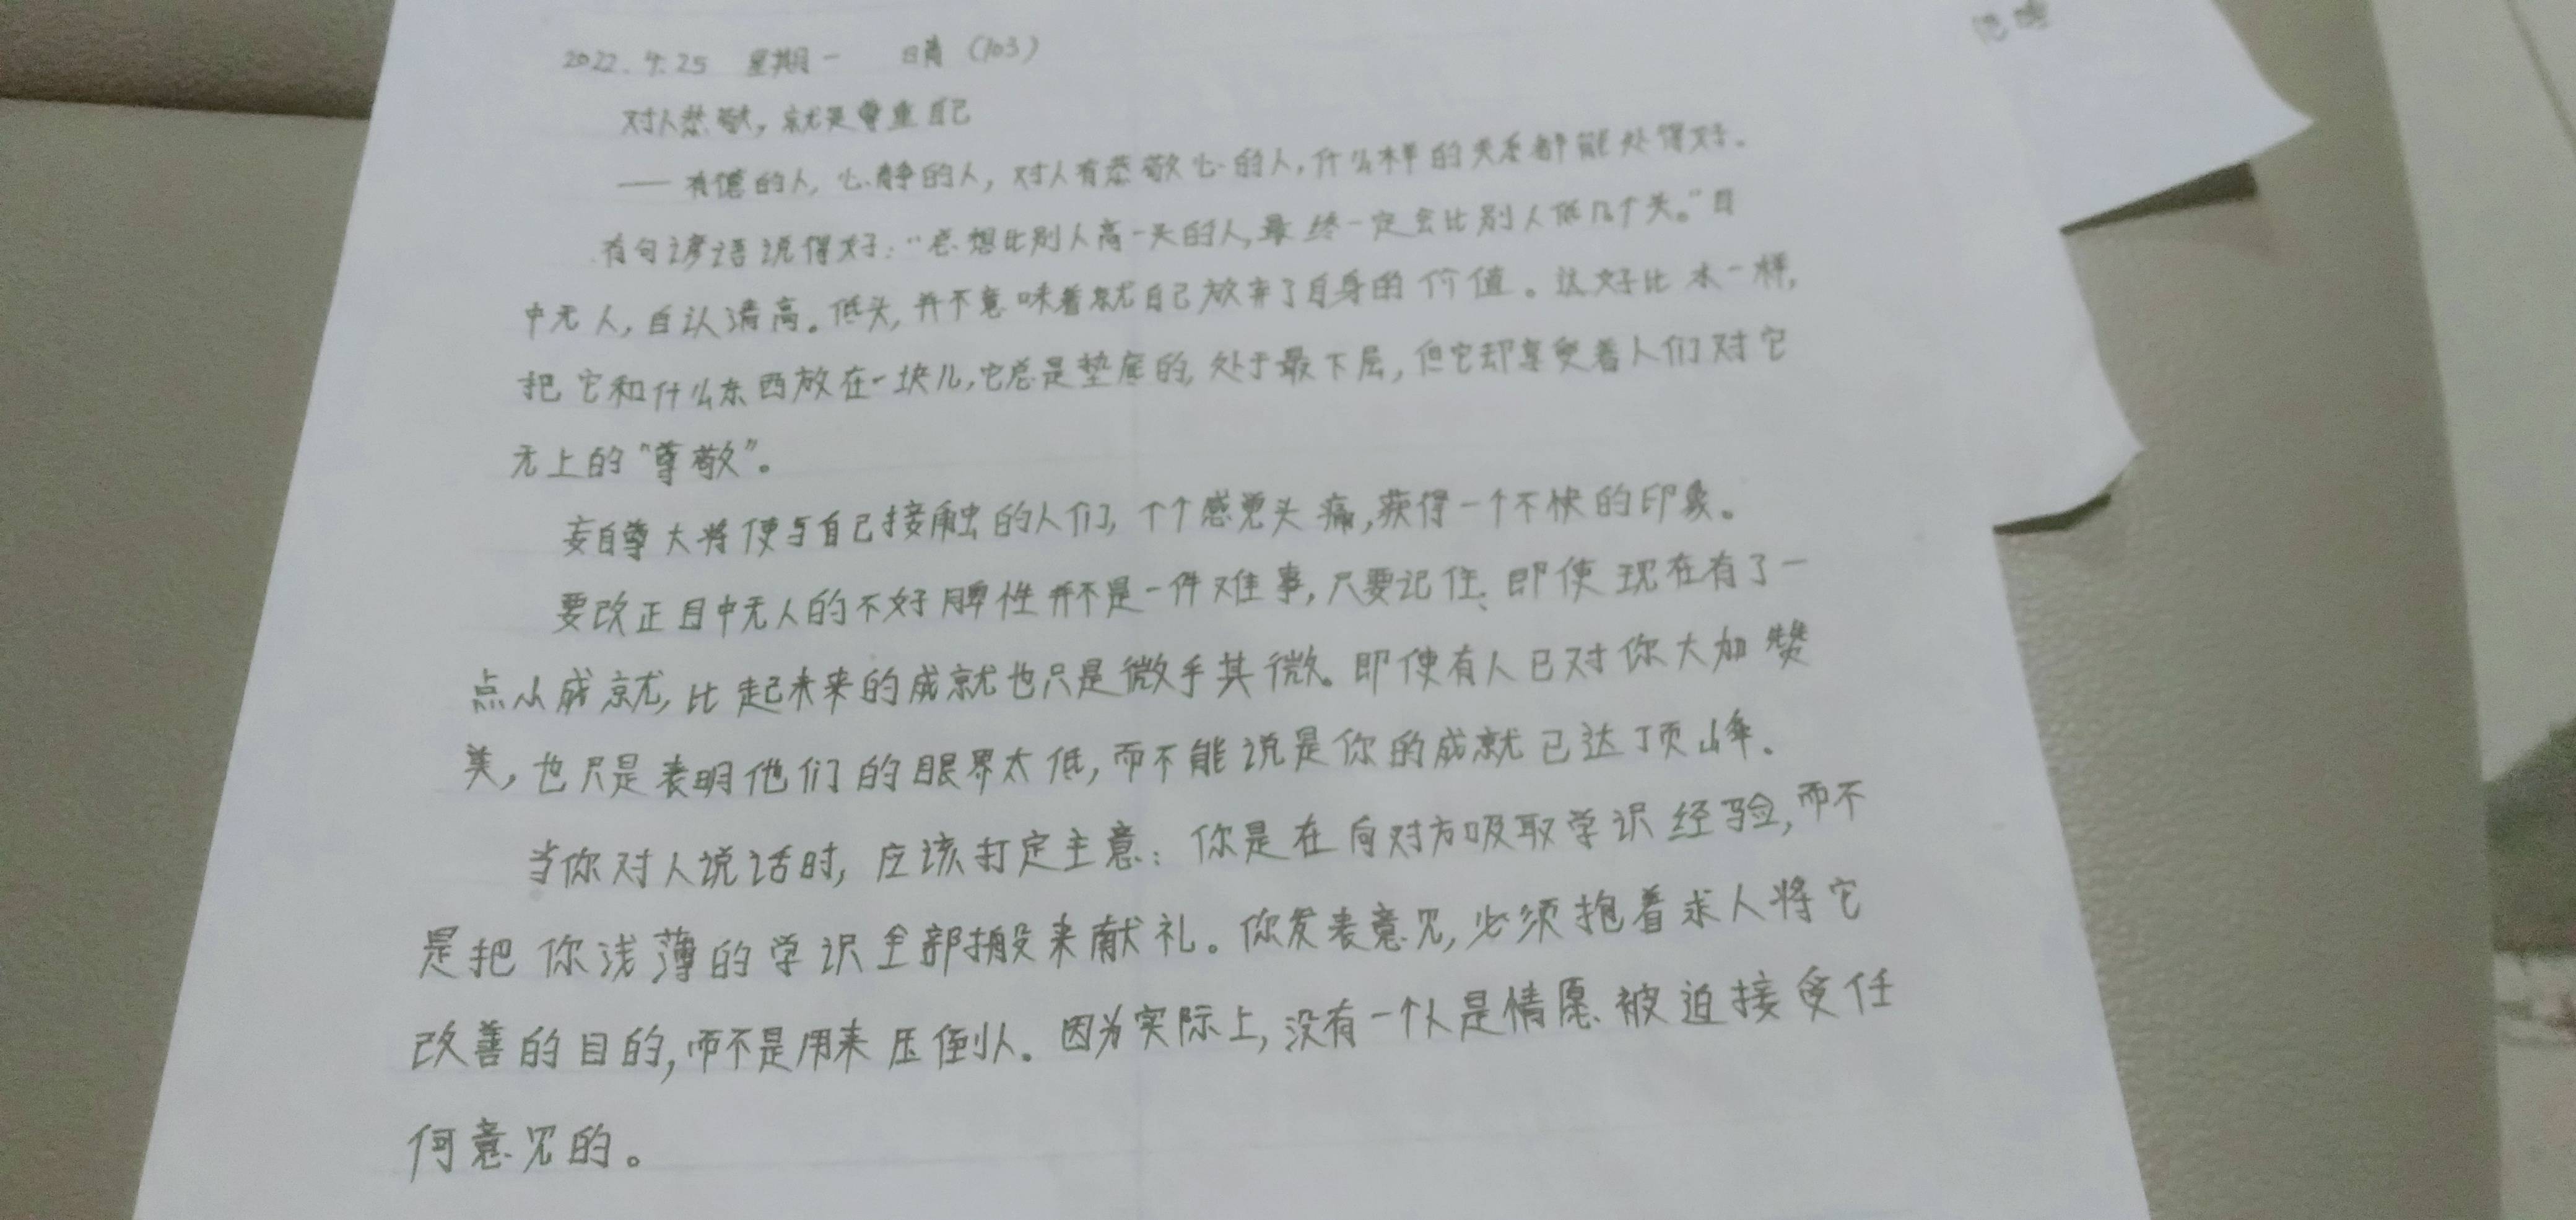 2022.4.25 星期一 日精(103)
对人恭敬,就是尊重自己
——有德的人,心静的人,对人有恭敬心的人,什么样的关系都能处得好。
有句谚语说得好:“总想比别人高一头的人,最终一定会比别人低几个头。”目
中无人,自认清高。低头,并不意味着就自己放弃了自身的价值。这好比水一样,
把它和什么东西放在一块儿,它总是垫底的,处于最下层,但它却享受着人们对它
无上的“尊敬”。
妄自尊大将使与自己接触的人们,个个感觉头痛,获得一个不快的印象。
要改正目中无人的不好脾性并不是一件难事,只要记住:即使现在有了一
点从成就,比起未来的成就也只是微乎其微。即使有人已对你大加赞
美,也只是表明他们的眼界太低,而不能说是你的成就已达顶峰。
当你对人说话时,应该打定主意:你是在向对方吸取学识经验,而不
是把你浅薄的学识全部搬来献礼。你发表意见,必须抱着求人将它
改善的目的,而不是用来压倒人。因为实际上,没有一个人是情愿被迫接受任
何意见的。